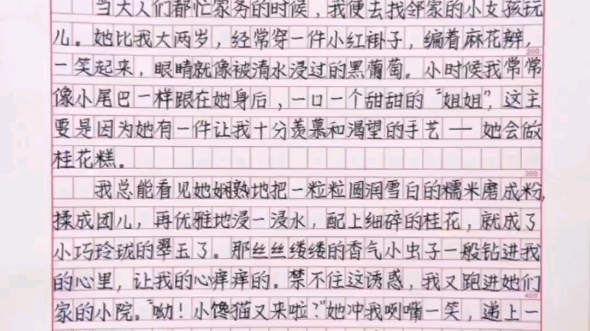 当大人们都忙家务的时候，我便去找邻家的小女孩玩
儿。她比我大两岁，经常穿一件小红褂子，编着麻花辫，
一笑起来，眼睛就像被清水浸过的黑葡萄。小时候我常常
像小尾巴一样跟在她身后，一口一个甜甜的“姐姐”，这主
要是因为她有一件让我十分羡慕和渴望的手艺——她会做
桂花糕。
我总能看见她娴熟地把一粒粒圆润雪白的糯米磨成粉，
揉成团儿，再优雅地浸一浸水，配上细碎的桂花，就成了
小巧玲珑的翠玉了。那丝丝缕缕的香气小虫子一般钻进我
的心里，让我的心痒痒的。禁不住这诱惑，我又跑进她们
家的小院。“呦！小馋猫又来啦？”她冲我咧嘴一笑，递上一